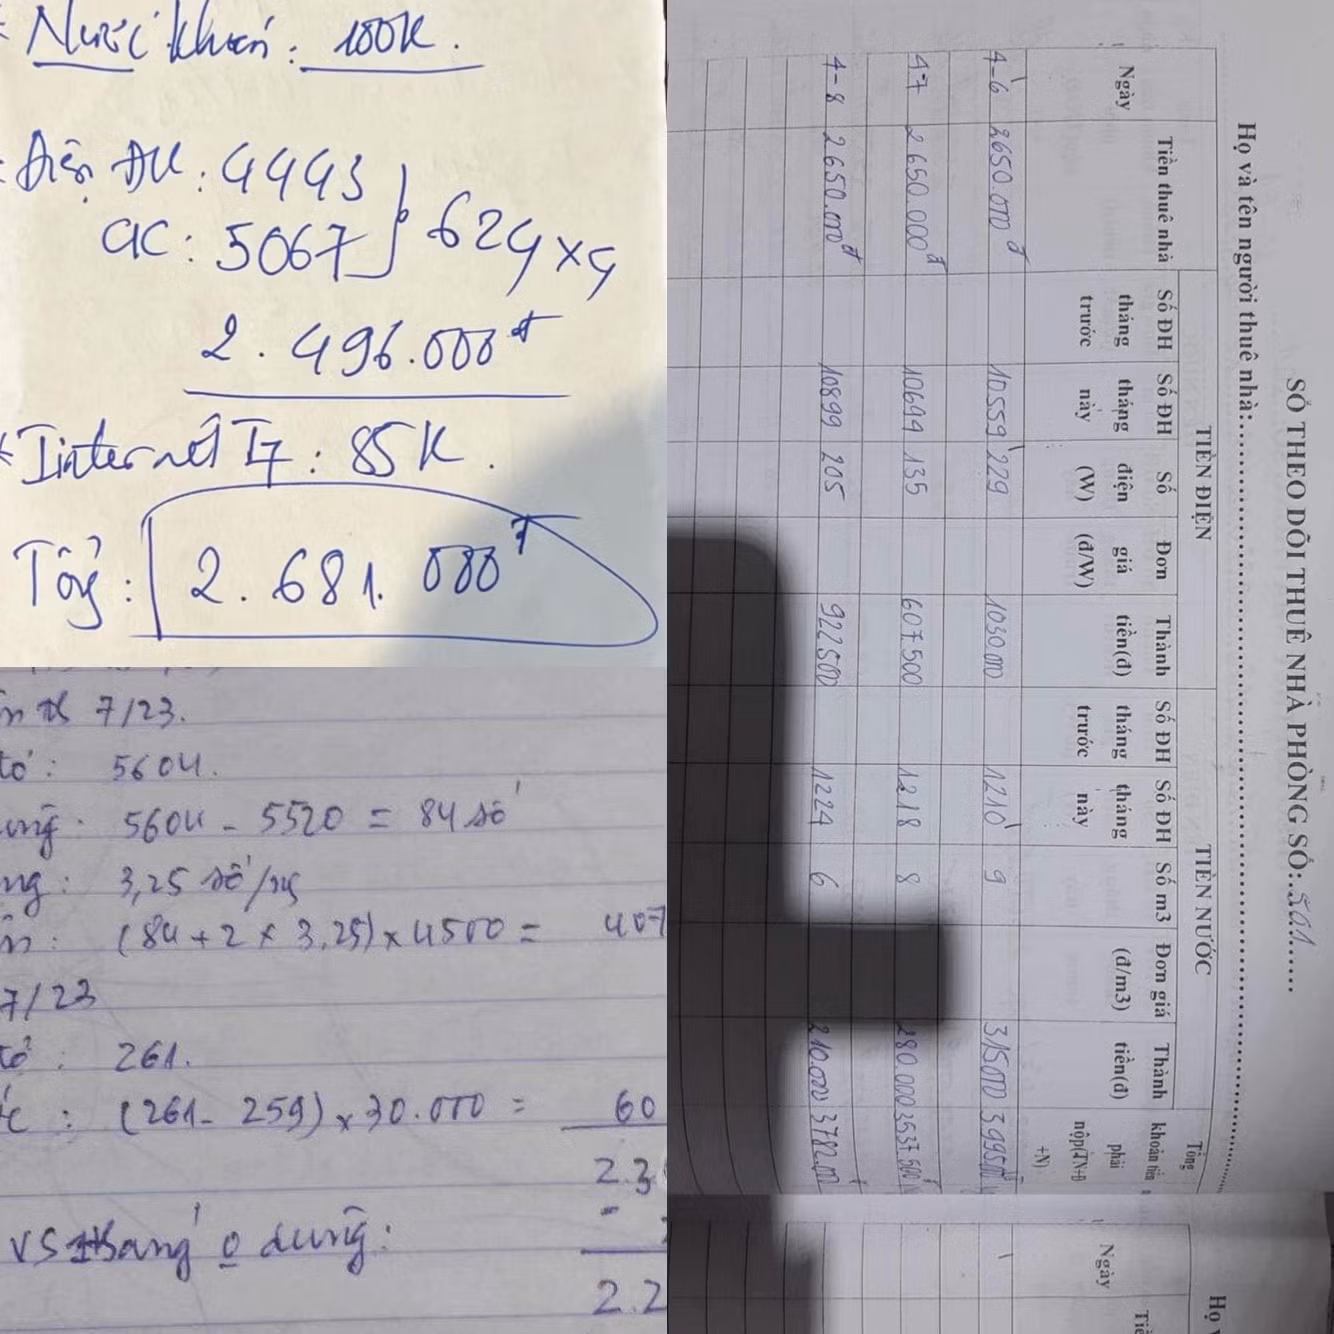 Nước khoán: 100K.
Điện ĐK: 4443
CK: 5067
624 x 4
2.496.000đ
* Internet T7: 85K.
Tổng: 2.681.000đ
7/23.
5604.
5604 - 5520 = 84 số
3,25 số/ng
(84 + 2 x 3,25) x 4500 = 407
7/23
261.
(261 - 259) x 30.000 = 60
2.3
VS tháng o dùng:
2.2
SỔ THEO DÕI THUÊ NHÀ PHÒNG SỐ: 501
Họ và tên người thuê nhà:
TIỀN ĐIỆN TIỀN NƯỚC
Ngày Tiền thuê nhà Số ĐH tháng trước Số ĐH tháng này Số điện (W) Đơn giá (đ/W) Thành tiền(đ) Số ĐH tháng trước Số ĐH tháng này Số m3 Đơn giá (đ/m3) Thành tiền(đ) Tổng khoản tiền phải nộp(TN+Đ+N)
4-6 2650.000đ 10559 229 1030.000 1210 9 315000 3995000
4-7 2650.000đ 10694 135 607.500 1218 8 280.000 3537.500
4-8 2650.000đ 10899 205 922500 1224 6 210.000 3782.000
Họ
Ngày